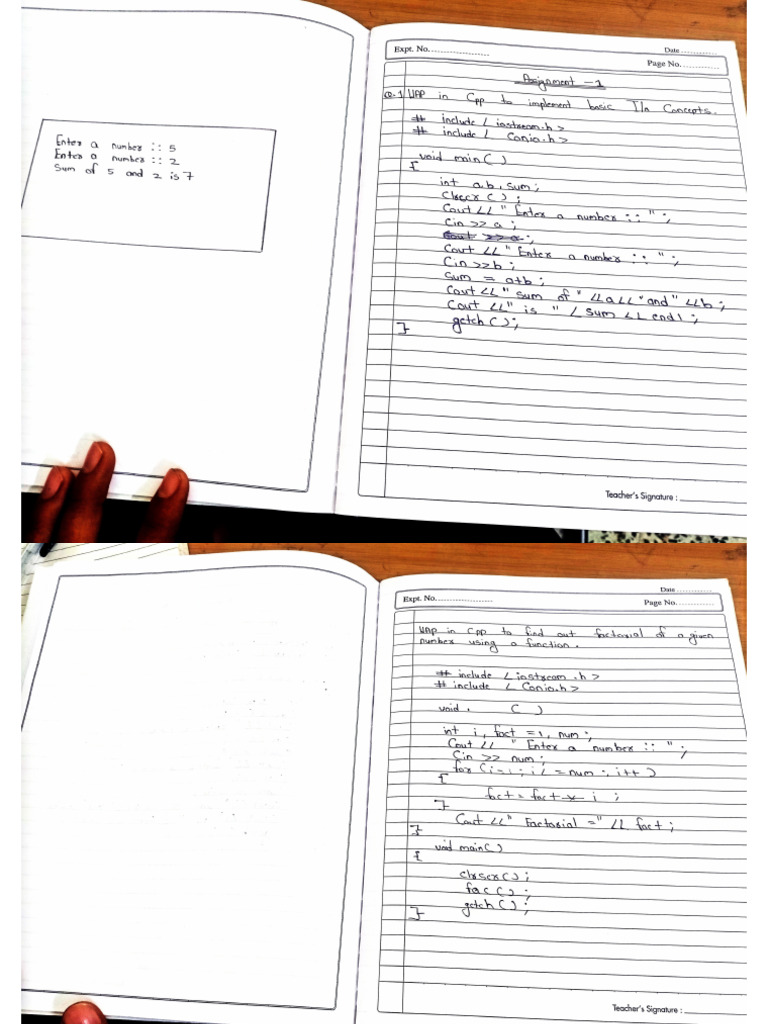 Enter a number :: 5
Enter a number :: 2
Sum of 5 and 2 is 7
Expt. No.
Date
Page No.
Assignment - 1
Q-1 WAP in Cpp to implement basic I/o Concepts.
# include < iostream.h >
# include < Conio.h >
void main ( )
{
int a,b, sum ;
Clrscr ( ) ;
Cout << " Enter a number :: " ;
Cin >> a ;
Cout << " Enter a number :: " ;
Cin >> b ;
sum = a+b ;
Cout << " sum of " <<a<< "and" <<b ;
Cout << " is " < sum << endl ;
getch ( ) ;
}
Teacher's Signature :
Expt. No.
Date
Page No.
WAP in Cpp to find out factorial of a given
number using a function.
# include < iostream .h >
# include < Conio.h >
void . ( )
int i, fact =1, num ;
Cout << " Enter a number :: " ;
Cin >> num ;
for (i=1 ; i< = num ; i++ )
{
fact = fact * i ;
}
Cout << " Factorial =" << fact ;
}
void main( )
{
clrscr( ) ;
fac( ) ;
getch ( ) ;
}
Teacher's Signature :